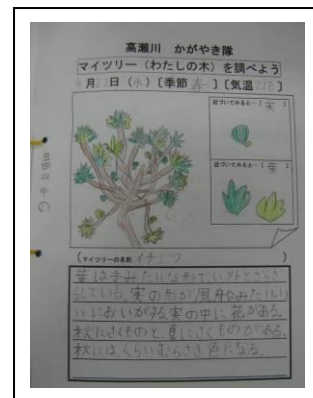 高瀬川 かがやき隊
マイツリー（わたしの木）を調べよう
月 日（水）〔季節 春〕〔気温 〕
近づいてみると…〔実〕
近づいてみると…〔葉〕
（マイツリーの名前 イチジク ）
葉は手みたいなかたちで
している。実の形が風船みたい。いい
においがする。実の中に花がある。
秋にさくものと、夏にさくものがある。
秋にはくらいむらさき色になる。